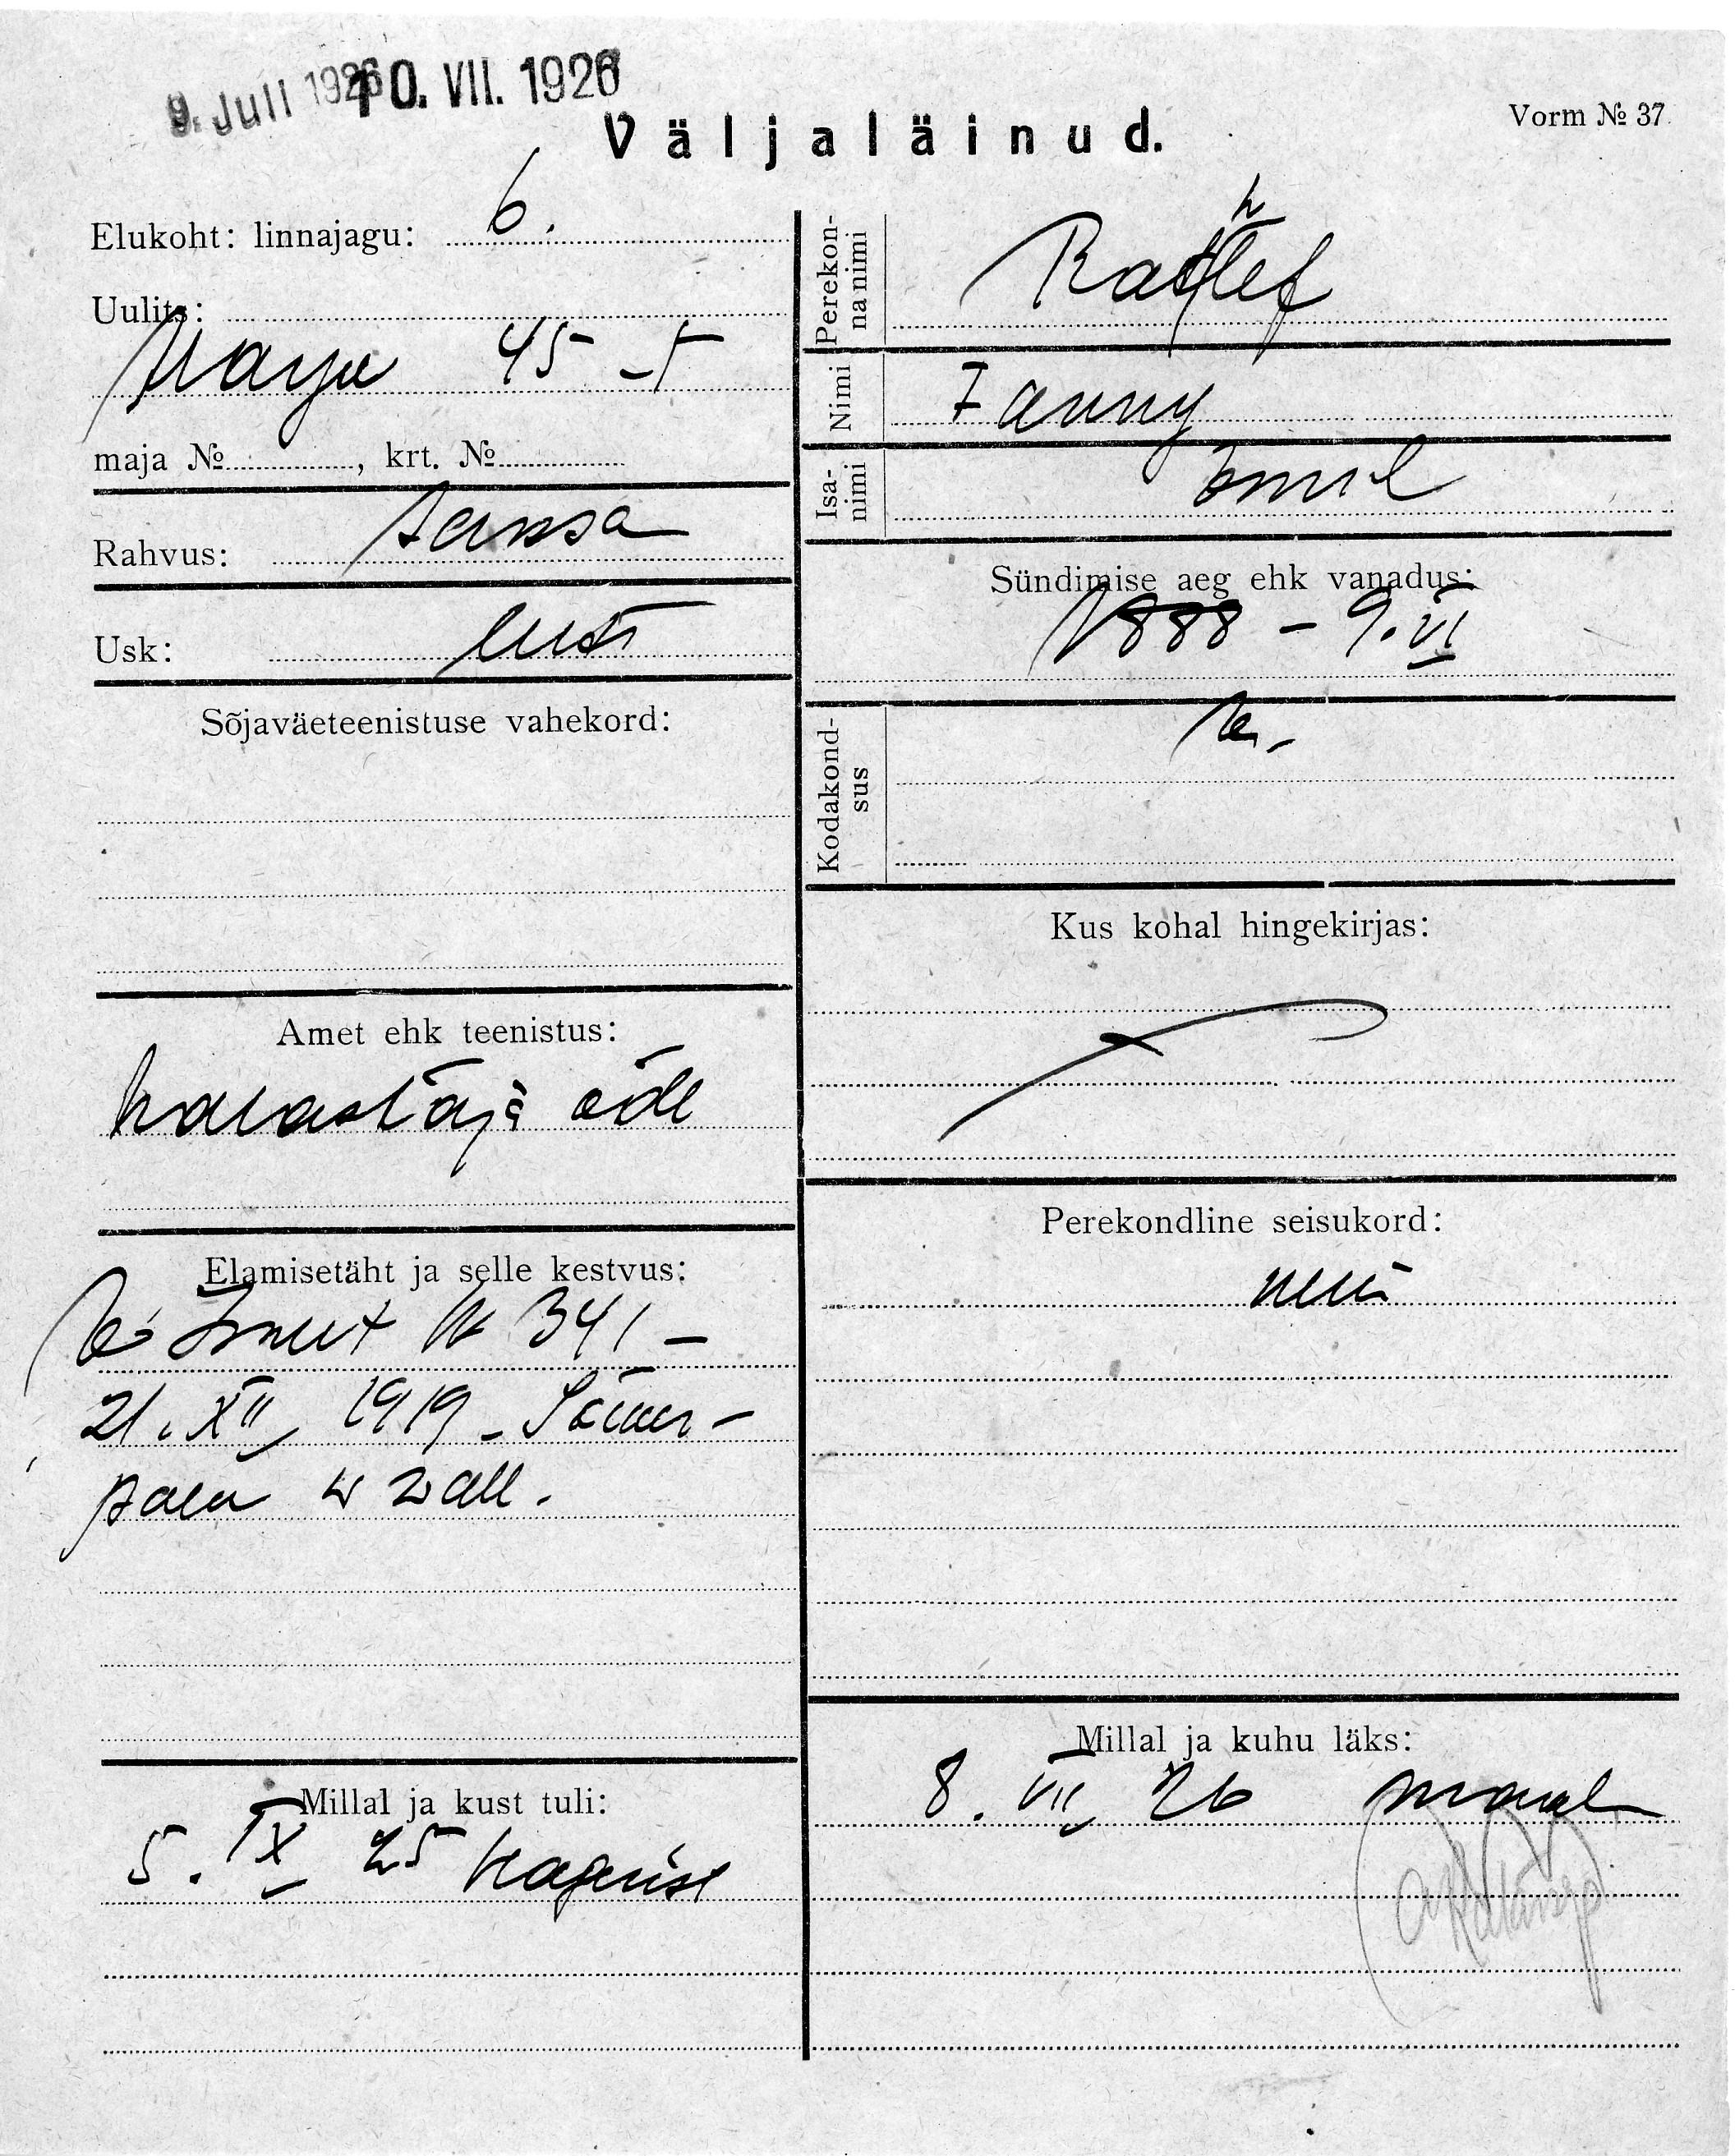 9. Juli 1926
10. VII. 1926
Väljaläinud.
Vorm № 37
Elukoht: linnajagu: 6.
Uulits:
Harju 45 -
maja № , krt. №
Rahvus: saksa
Usk: luth
Sõjaväeteenistuse vahekord:
Amet ehk teenistus:
halastaja õde
Elamisetäht ja selle kestvus:
№ 341 –
21. XII 1919 – Sõmer-
palu v vall.
Millal ja kust tuli:
5. IX 25 Kagerist
Perekonnanimi
h
Rathlef
Nimi
Fanny
Isanimi
Emil
Sündimise aeg ehk vanadus:
1888 – 9. VI
Kodakondsus
Kus kohal hingekirjas:
Perekondline seisukord:
Millal ja kuhu läks:
8. VII 26 maale